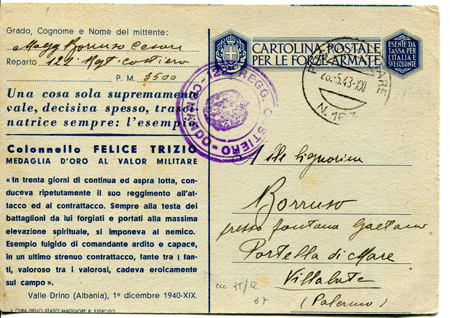 Grado, Cognome e Nome del mittente:
Magg Borruso Cesare
Reparto 12° Rgt costiero
P. M. 3500
Una cosa sola supremamente
vale, decisiva spesso, trasci-
natrice sempre: l'esempio
Colonnello FELICE TRIZIO
MEDAGLIA D'ORO AL VALOR MILITARE
« In trenta giorni di continua ed aspra lotta, con-
duceva ripetutamente il suo reggimento all'at-
tacco ed al contrattacco. Sempre alla testa dei
battaglioni da lui forgiati e portati alla massima
elevazione spirituale, si imponeva al nemico.
Esempio fulgido di comandante ardito e capace,
in un ultimo strenuo contrattacco, fante tra i fan-
ti, valoroso tra i valorosi, cadeva eroicamente
sul campo ».
Valle Drino (Albania), 1° dicembre 1940-XIX.
A CURA DELLO STATO MAGGIORE R. ESERCITO
CARTOLINA POSTALE
PER LE FORZE ARMATE
ESENTE DA
TASSA PER
L'ITALIA
E SVE COLONIE
.5.43-XXI
COMANDO
REGG. COSTIERO
Signorina
Borruso
presso Fontana Gaetano
Portella di Mare
Villabate
(Palermo)